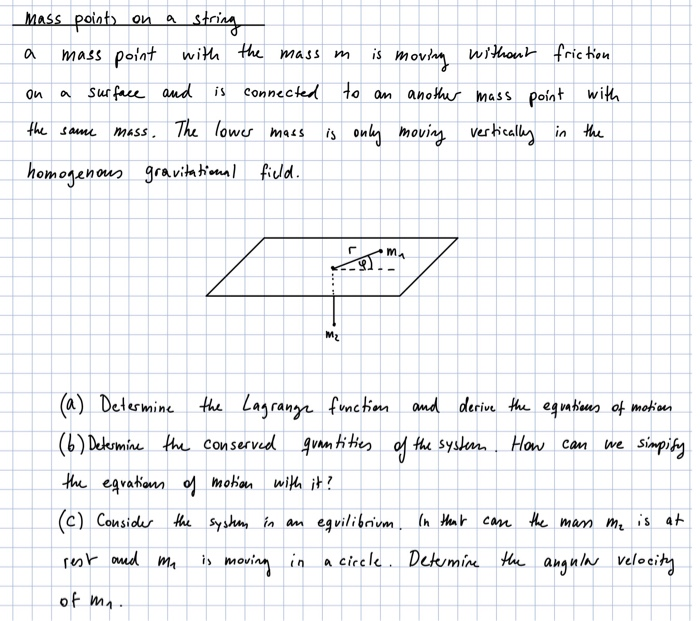 Mass points on a string
a mass point with the mass m is moving without friction
on a surface and is connected to an another mass point with
the same mass. The lower mass is only moving vertically in the
homogenous gravitational field.
r
m₁
φ
m₂
(a) Determine the Lagrange function and derive the equations of motion
(b) Determine the conserved quantities of the system. How can we simpify
the equations of motion with it?
(c) Consider the system in an equilibrium. In that case the mass m₂ is at
rest and m₁ is moving in a circle. Determine the angular velocity
of m₁.